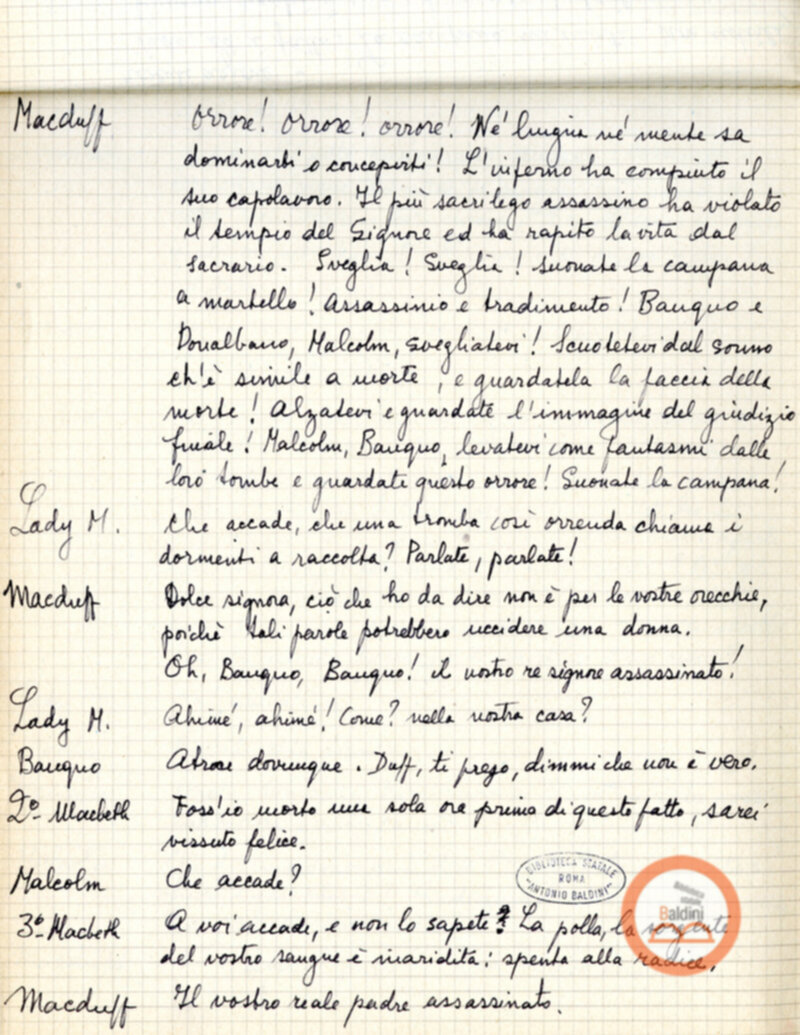 Macduff Orrore! Orrore! orrore! Né lingua né mente sa
dominarti o concepirti! L'inferno ha compiuto il
suo capolavoro. Il più sacrilego assassino ha violato
il tempio del Signore ed ha rapito la vita dal
sacrario. Sveglia! Sveglia! suonate la campana
a martello! Assassinio e tradimento! Banquo e
Donalbano, Malcolm, svegliatevi! Scuotetevi dal sonno
ch'è simile a morte, e guardatela la faccia della
morte! Alzatevi e guardate l'immagine del giudizio
finale! Malcolm, Banquo, levatevi come fantasmi dalle
loro tombe e guardate questo orrore! Suonate la campana!
Lady M. Che accade, che una tromba così orrenda chiama i
dormenti a raccolta? Parlate, parlate!
Macduff Dolce signora, ciò che ho da dire non è per le vostre orecchie,
poichè tali parole potrebbero uccidere una donna.
Oh, Banquo, Banquo! il nostro re signore assassinato!
Lady M. Ahimé, ahimé! Come? nella nostra casa?
Banquo Atroce dovunque. Duff, ti prego, dimmi che non è vero.
2º Macbeth Foss'io morto una sola ora prima di questo fatto, sarei
vissuto felice.
Malcolm Che accade?
BIBLIOTECA STATALE
ROMA
"ANTONIO BALDINI"
3º Macbeth A voi accade, e non lo sapete? La polla, la sorgente
Biblioteca
statale
Baldini
del vostro sangue è inaridita: spenta alla radice.
Macduff Il vostro reale padre assassinato.